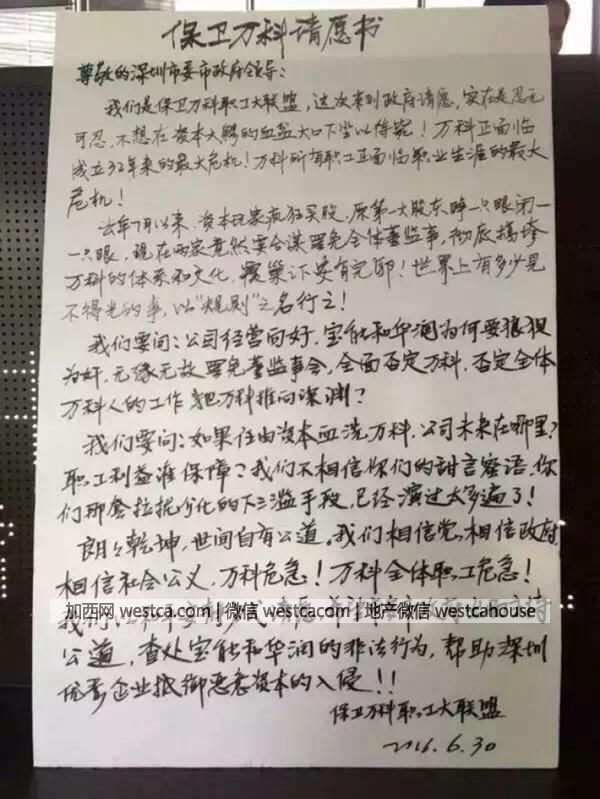 保卫万科请愿书
尊敬的深圳市委市政府领导：
我们是保卫万科职工大联盟，这次来到政府请愿，实在是忍无
可忍，不想在资本大鳄的血盆大口下坐以待毙！万科正面临
成立32年来的最大危机！万科所有职工正面临职业生涯的最大
危机！
去年7月以来，资本玩家疯狂买股，原第一大股东睁一只眼闭一
一只眼，现在两家竟然要合谋罢免全体董监事，彻底搞垮
万科的体系和文化，覆巢下安有完卵！世界上有多少见
不得光的事，以“规则”之名行之！
我们要问：公司经营向好，宝能和华润为何要狼狈
为奸，无缘无故罢免董监事会，全面否定万科，否定全体
万科人的工作，把万科推向深渊？
我们要问：如果任由资本血洗万科，公司未来在哪里？
职工利益谁保障？我们不相信你们的甜言蜜语，你
们那套拉拢分化的下三滥手段，已经演过太多遍了！
朗々乾坤，世间自有公道。我们相信党，相信政府，
相信社会公义，万科危急！万科全体职工危急！
加西网 westca.com | 微信 westcacom | 地产微信 westcahouse
我们
公道，查处宝能和华润的非法行为，帮助深圳
优秀企业抵御恶意资本的入侵！！
保卫万科职工大联盟
2016.6.30